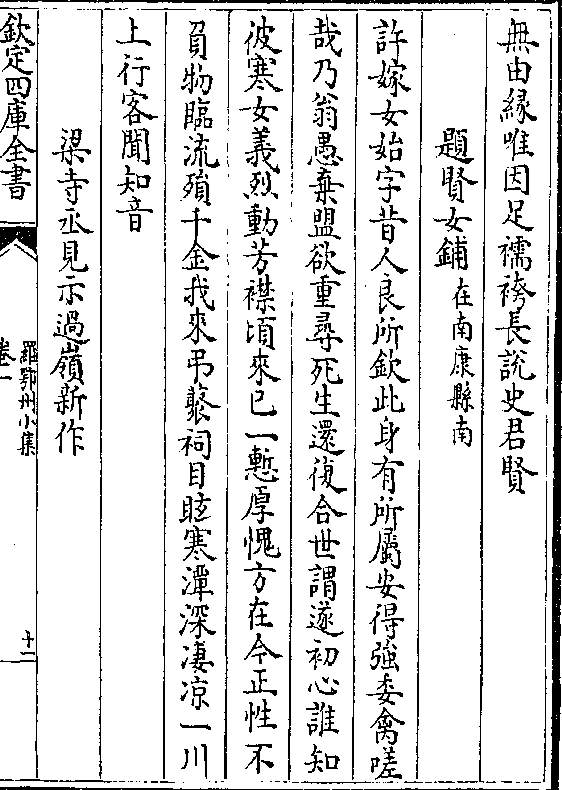 無由縁唯因足襦袴長說史君賢
題賢女鋪在南康縣南
許嫁女始字昔人良所欽此身有所屬安得強委禽嗟
哉乃翁愚棄盟欲重尋死生還復合世謂遂初心誰知
彼寒女義烈動芳襟頃來已一慙厚愧方在今正性不
負物臨流殞千金我來弔褻祠目眩寒潭深凄凉一川
上行客聞知音
梁寺丞見示過嶺新作
欽定四庫全書
羅鄂州小集
卷一
十一